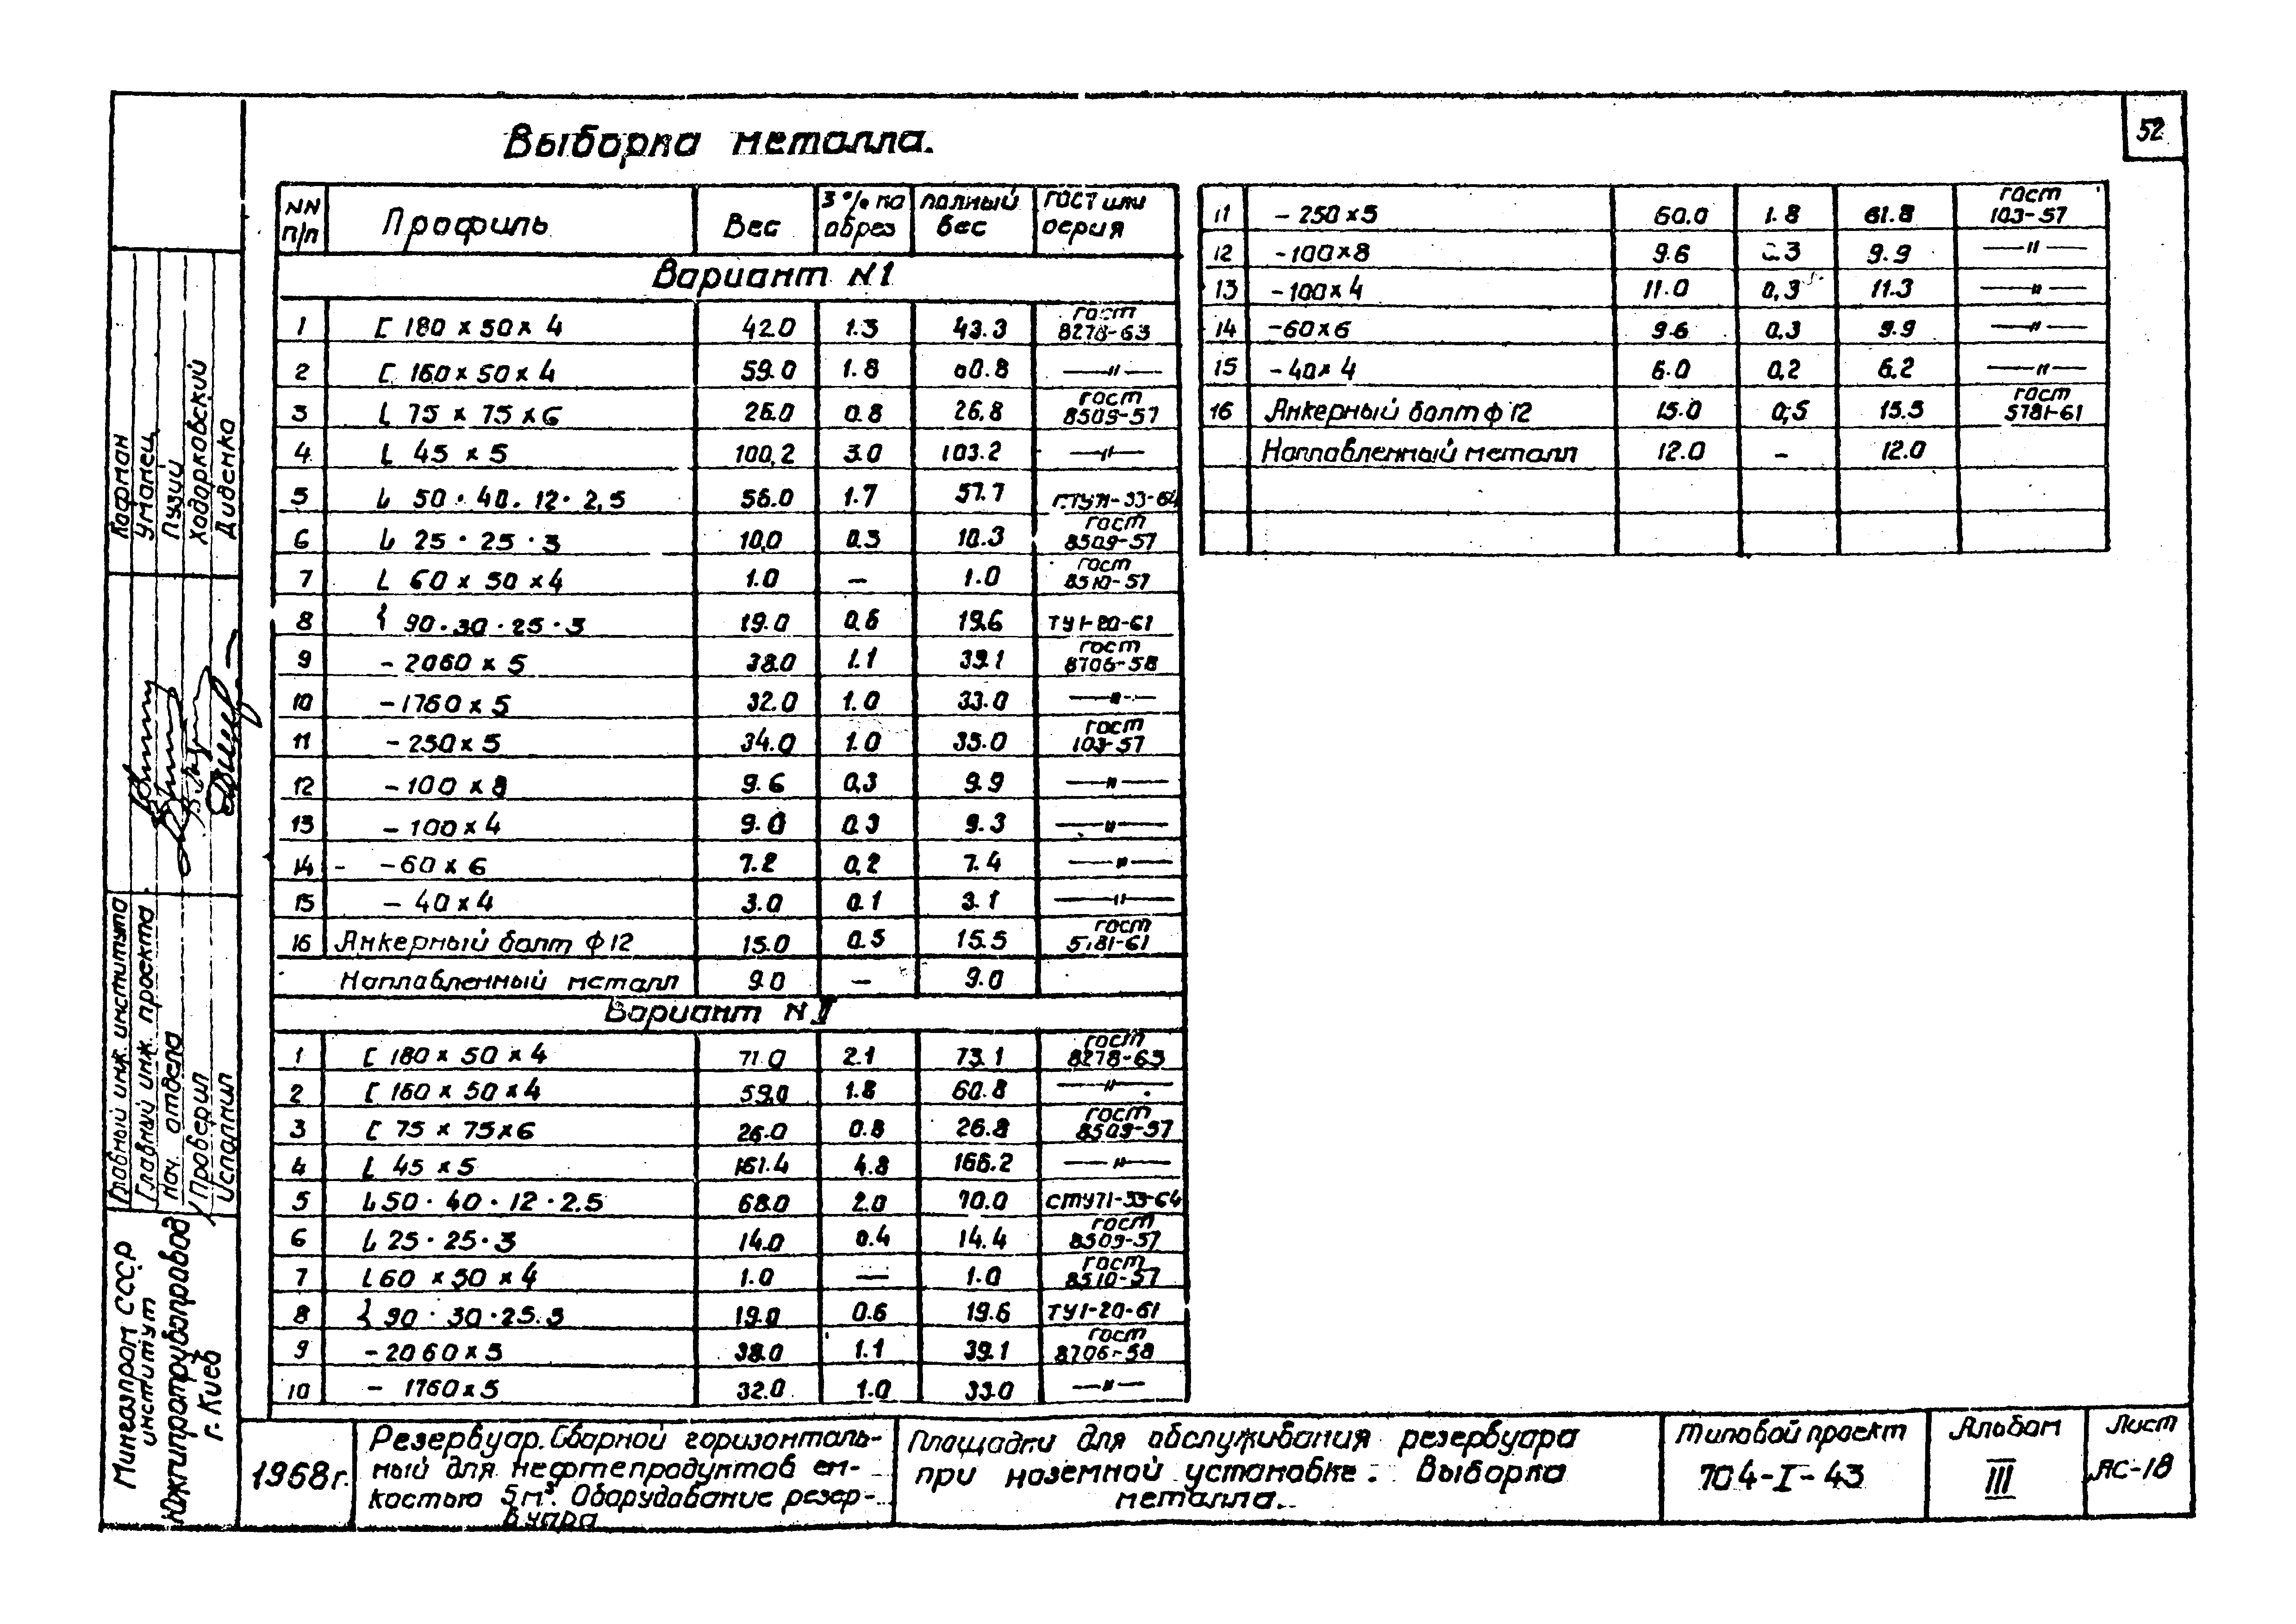 52
Выборка металла.
NN п/п Профиль Вес 3% на обрез полный вес ГОСТ или серия
Вариант N1
1 [ 180 x 50 x 4 42.0 1.3 43.3 гост 8278-63
2 [ 160 x 50 x 4 59.0 1.8 60.8 —"—
3 L 75 x 75 x 6 26.0 0.8 26.8 гост 8509-57
4 L 45 x 5 100,2 3.0 103.2 —"—
5 L 50 · 40 · 12 · 2,5 56.0 1.7 57.7 СТУ71-33-64
6 L 25 · 25 · 3 10,0 0.3 10.3 гост 8509-57
7 L 60 x 50 x 4 1.0 — 1.0 гост 8510-57
8 90 · 30 · 25 · 3 19.0 0,6 19.6 ТУ1-20-61
9 - 2060 x 5 38.0 1.1 39.1 гост 8706-58
10 - 1760 x 5 32.0 1.0 33.0 —"—
11 - 250 x 5 34.0 1.0 35.0 гост 103-57
12 - 100 x 8 9.6 0,3 9.9 —"—
13 - 100 x 4 9.0 0.3 9.3 —"—
14 - 60 x 6 7.2 0,2 7.4 —"—
15 - 40 x 4 3.0 0.1 3.1 —"—
16 Анкерный болт ф 12 15.0 0.5 15.5 гост 5781-61
Наплавленный металл 9.0 — 9.0
Вариант N II
1 [ 180 x 50 x 4 71.0 2.1 73.1 гост 8278-63
2 [ 160 x 50 x 4 59.0 1.8 60.8 —"—
3 [ 75 x 75 x 6 26.0 0.8 26.8 гост 8509-57
4 L 45 x 5 161.4 4.8 166.2 —"—
5 L 50 · 40 · 12 · 2.5 68.0 2.0 70.0 СТУ71-33-64
6 L 25 · 25 · 3 14.0 0.4 14.4 гост 8509-57
7 L 60 x 50 x 4 1.0 — 1.0 гост 8510-57
8 90 · 30 · 25 · 3 19.0 0.6 19.6 ТУ1-20-61
9 - 2060 x 5 38.0 1.1 39.1 гост 8706-58
10 - 1760 x 5 32.0 1.0 33.0 —"—
11 - 250 x 5 60.0 1.8 61.8 гост 103-57
12 - 100 x 8 9.6 0.3 9.9 —"—
13 - 100 x 4 11.0 0,3 11.3 —"—
14 - 60 x 6 9.6 0,3 9.9 —"—
15 - 40 x 4 6.0 0,2 6.2 —"—
16 Анкерный болт ф 12 15.0 0,5 15.5 гост 5781-61
Наплавленный металл 12.0 - 12.0
Кофман
Уманец
Пузий
Ходорковский
Диденко
Главный инж. института
Главный инж. проекта
Нач. отдела
Проверил
Исполнил
Мингазпром СССР
институт
Южгипротрубопровод
г. Киев
1968г.
Резервуар. Сборной горизонталь-
ный для нефтепродуктов ем-
костью 5м³. Оборудование резер-
вуара
Площадки для обслуживания резервуара
при наземной установке. Выборка
металла.
Типовой проект
704-I-43
Альбом
III
Лист
АС-18